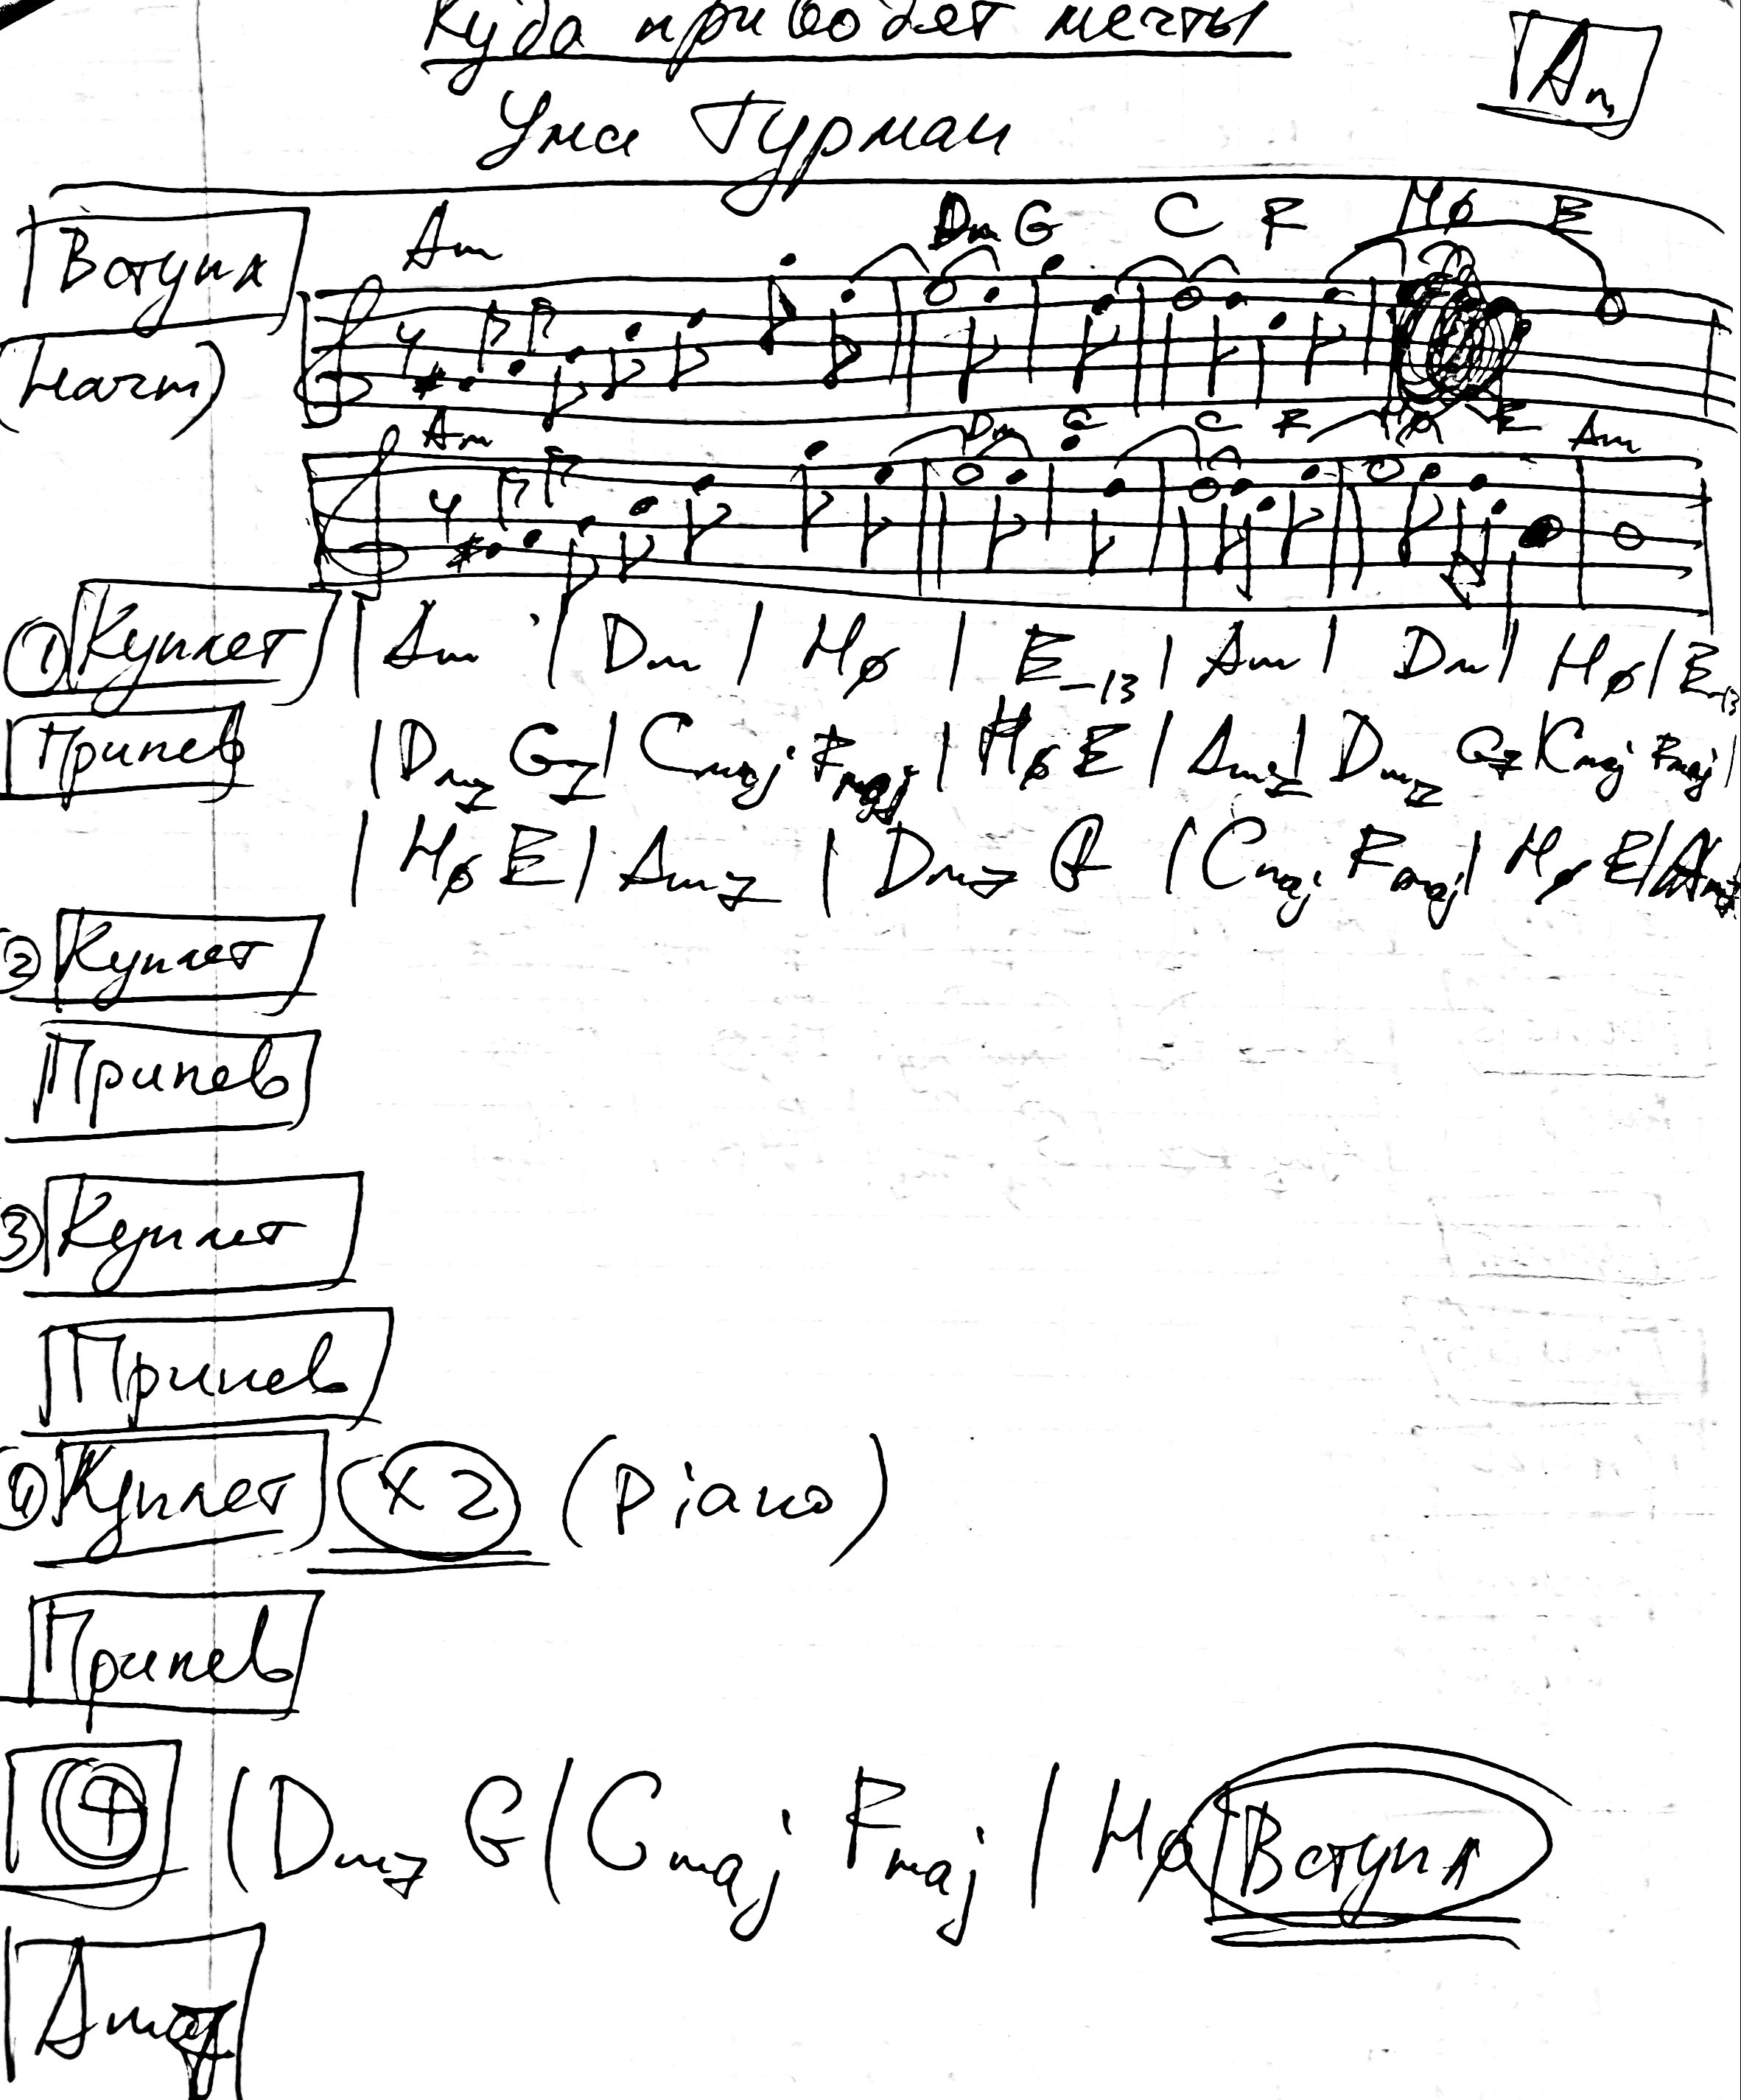 Куда приводят мечты
Ума Турман
Am
Вступл
Am Dm G C F Hø E
(Harm)
Am Dm G C F Hø E Am
① Куплет | Am | Dm | Hø | E-13 | Am | Dm | Hø | E-13
Припев | Dm7 G7 | Cmaj Fmaj | Hø E | Am7 | Dm7 G7 | Cmaj Fmaj |
| Hø E | Am7 | Dm7 G | Cmaj Fmaj | Hø E | Am7
② Куплет
Припев
③ Куплет
Припев
④ Куплет x2 (piano)
Припев
| Dm7 G | Cmaj Fmaj | Hø | Вступл